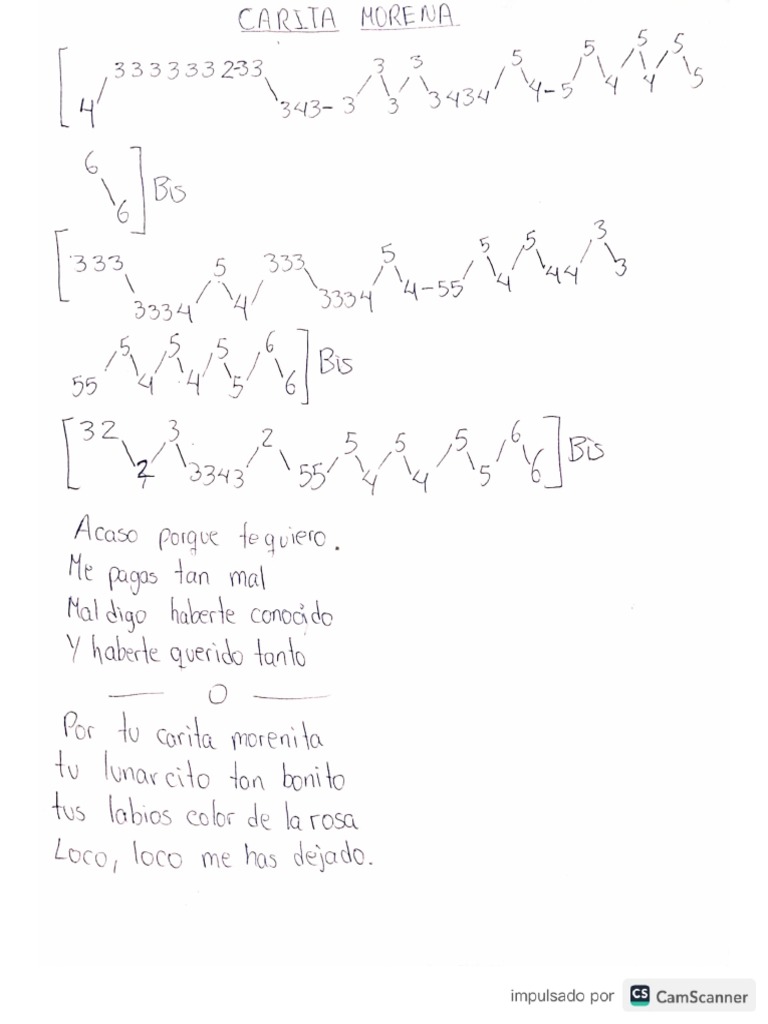 CARITA MORENA
[4/333333233\343-3/3\3/3\3434/5\4-5/5\4/5\4/5\5
6\6] Bis
[333\3334/5\4/333\3334/5\4-55/5\4/5\44/3\3
55/5\4/5\4/5\5/6\6] Bis
[32\2/3\3343/2\55/5\4/5\4/5\5/6\6] Bis
Acaso porque te quiero.
Me pagas tan mal
Maldigo haberte conocido
Y haberte querido tanto
— O —
Por tu carita morenita
tu lunarcito tan bonito
tus labios color de la rosa
Loco, loco me has dejado.
impulsado por CS CamScanner